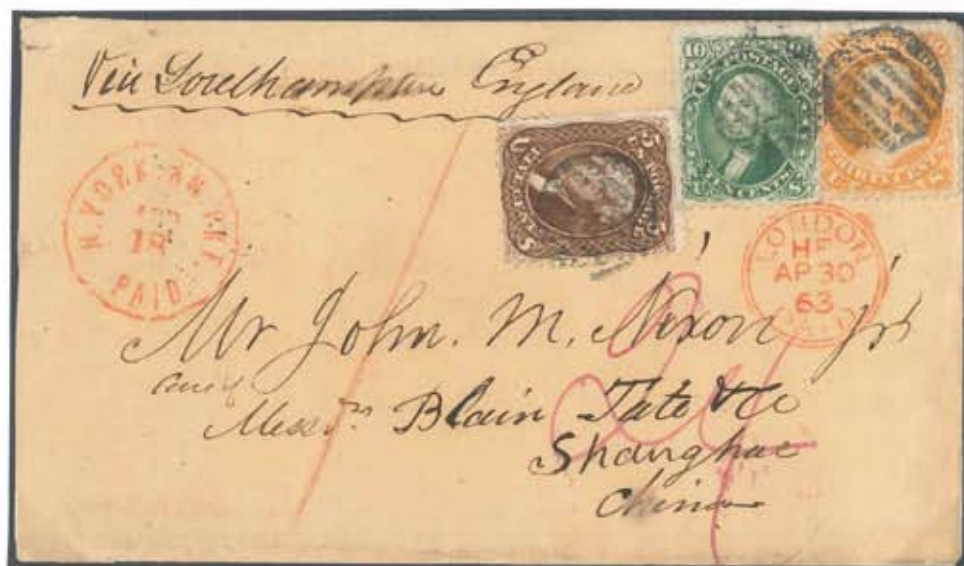 Via Southampton England
10 10
U.S. POSTAGE
TEN CENTS
U S
5 5
U.S. POSTAGE
FIVE CENTS
U S
N. YORK AM. PKT.
APR
18
PAID
LONDON
HF
AP 30
63
PAID
Mr John. M. Nixon Jr
care of
Messrs Blain Tate & Co
Shanghae
China
24